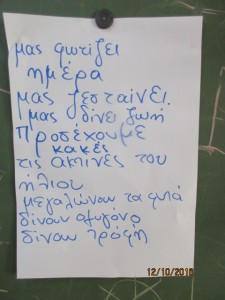 μας φωτίζει
ημέρα
μας ζεσταίνει!
μας δίνει ζωή
Προσέχουμε
κακές
τις ακτίνες του
ήλιου
μεγαλώνουν τα φυτά
δίνουν οξυγόνο
δίνουν τροφή
12/10/2016